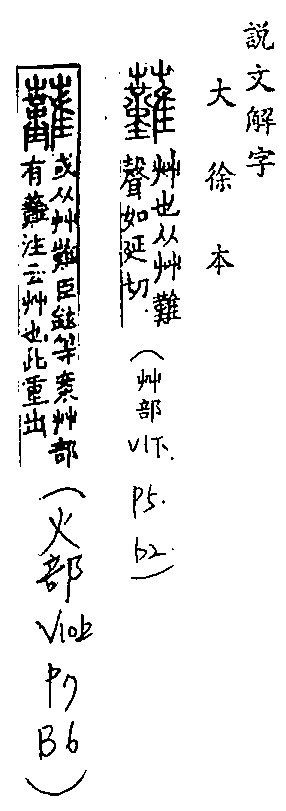 説文解字
大徐本
䕼
艸也从艸難
聲如延切.
(艸部
V1下.
P5.
b2.)
䕼
或从艸難臣鉉等案艸部
有䕼注云艸也此重出
(火部
V10上
P7
B6)